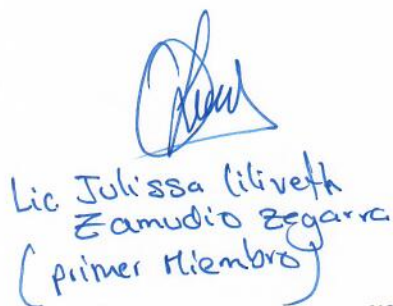 Lic Julissa Liliveth
Zamudio Zegarra
(primer Miembro)